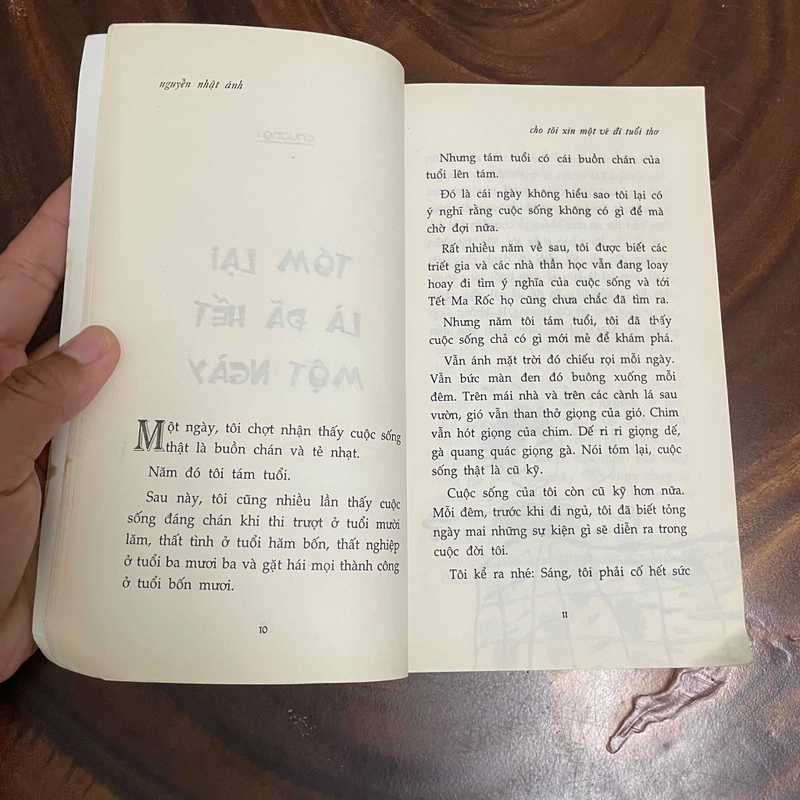 nguyễn nhật ánh
chương 1
TÓM LẠI
LÀ ĐÃ HẾT
MỘT NGÀY
Một ngày, tôi chợt nhận thấy cuộc sống
thật là buồn chán và tẻ nhạt.
Năm đó tôi tám tuổi.
Sau này, tôi cũng nhiều lần thấy cuộc
sống đáng chán khi thi trượt ở tuổi mười
lăm, thất tình ở tuổi hăm bốn, thất nghiệp
ở tuổi ba mươi ba và gặt hái mọi thành công
ở tuổi bốn mươi.
10
cho tôi xin một vé đi tuổi thơ
Nhưng tám tuổi có cái buồn chán của
tuổi lên tám.
Đó là cái ngày không hiểu sao tôi lại có
ý nghĩ rằng cuộc sống không có gì để mà
chờ đợi nữa.
Rất nhiều năm về sau, tôi được biết các
triết gia và các nhà thần học vẫn đang loay
hoay đi tìm ý nghĩa của cuộc sống và tới
Tết Ma Rốc họ cũng chưa chắc đã tìm ra.
Nhưng năm tôi tám tuổi, tôi đã thấy
cuộc sống chả có gì mới mẻ để khám phá.
Vẫn ánh mặt trời đó chiếu rọi mỗi ngày.
Vẫn bức màn đen đó buông xuống mỗi
đêm. Trên mái nhà và trên các cành lá sau
vườn, gió vẫn than thở giọng của gió. Chim
vẫn hót giọng của chim. Dế ri ri giọng dế,
gà quang quác giọng gà. Nói tóm lại, cuộc
sống thật là cũ kỹ.
Cuộc sống của tôi còn cũ kỹ hơn nữa.
Mỗi đêm, trước khi đi ngủ, tôi đã biết tỏng
ngày mai những sự kiện gì sẽ diễn ra trong
cuộc đời tôi.
Tôi kể ra nhé: Sáng, tôi phải cố hết sức
11